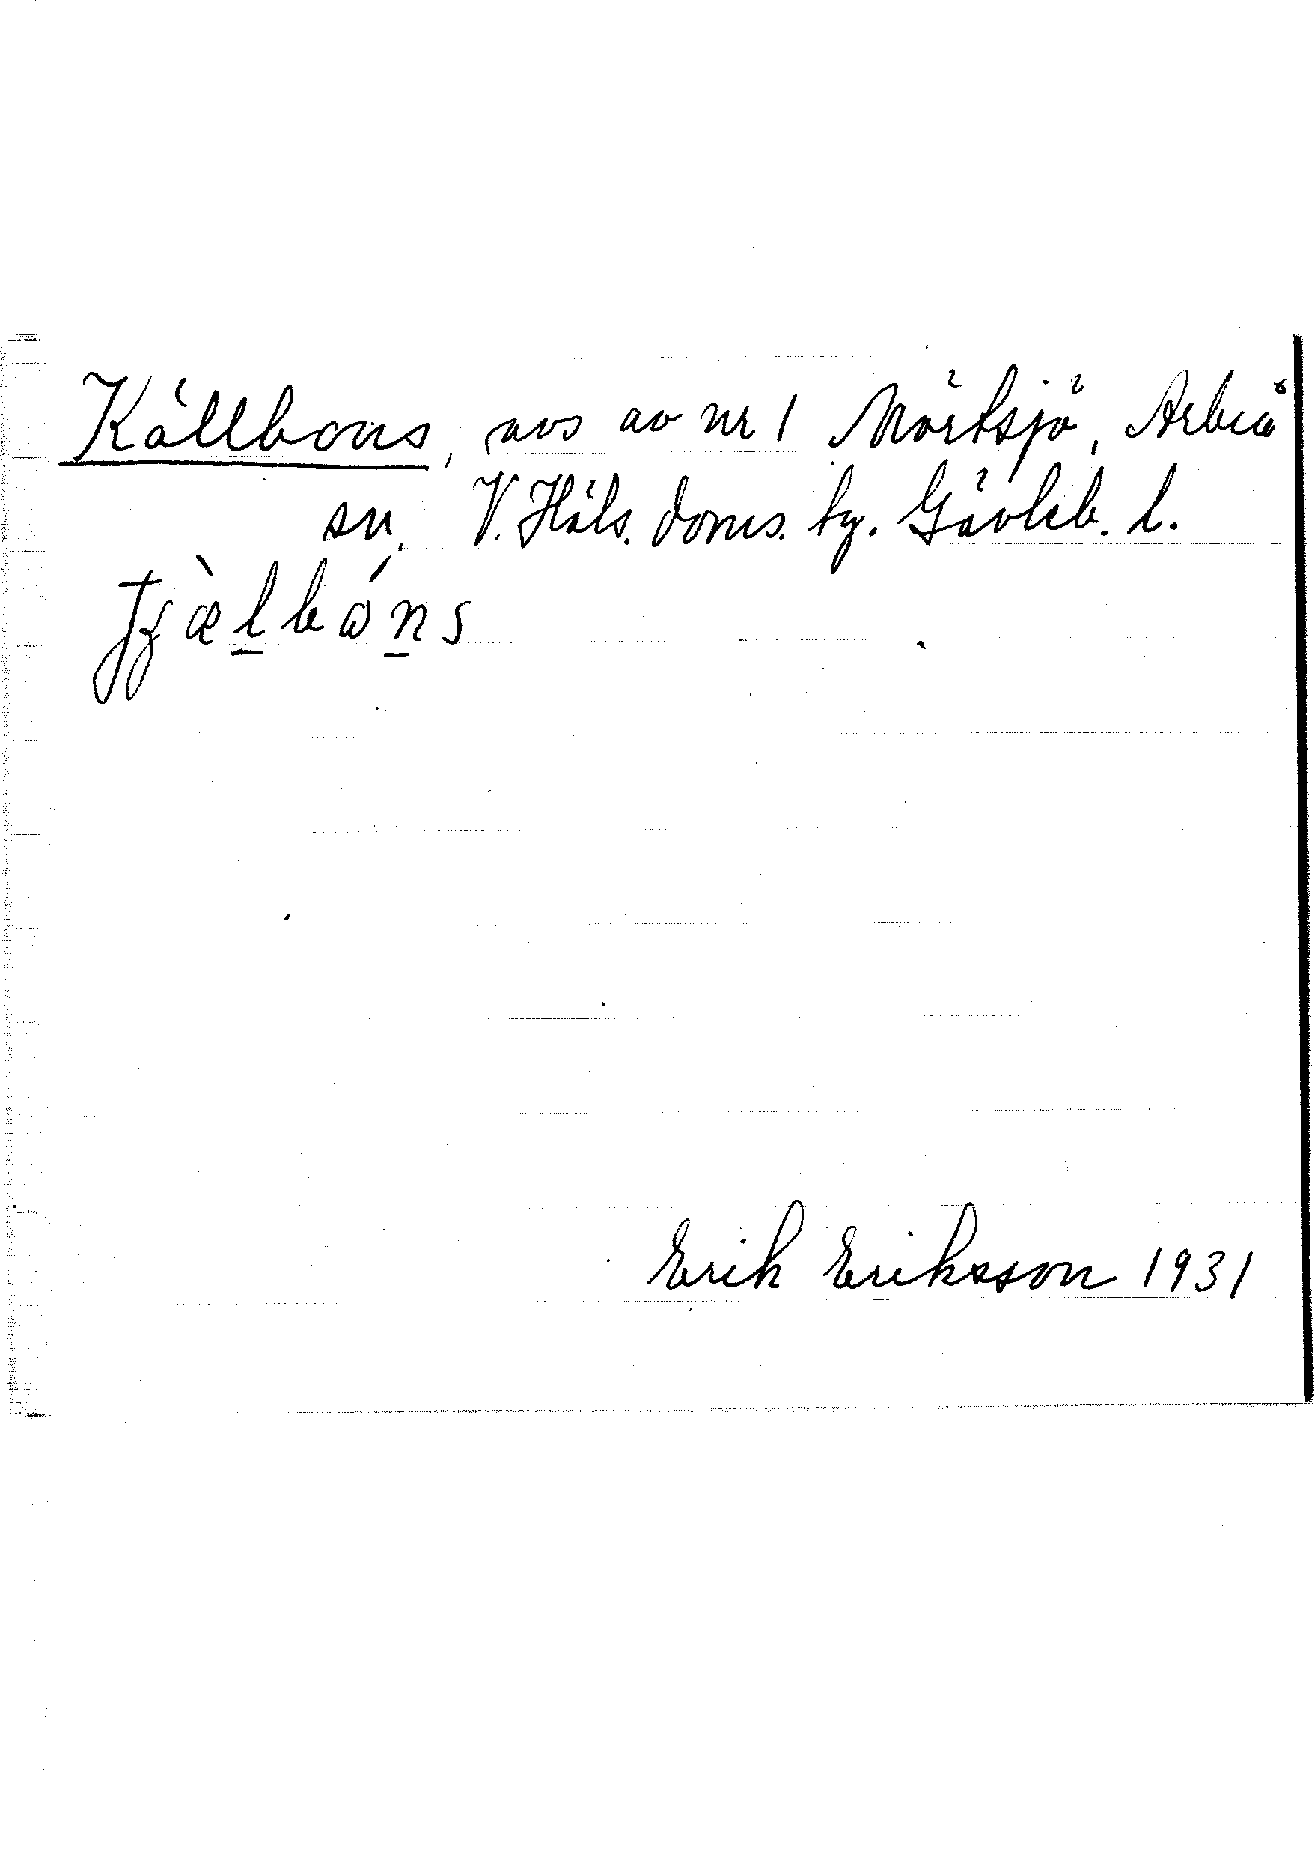 Källbons, avs av nr 1 Mörtsjö, Arbrå
sn, V. Häls. doms. hg. Gävleb. l.
Erik Eriksson 1931